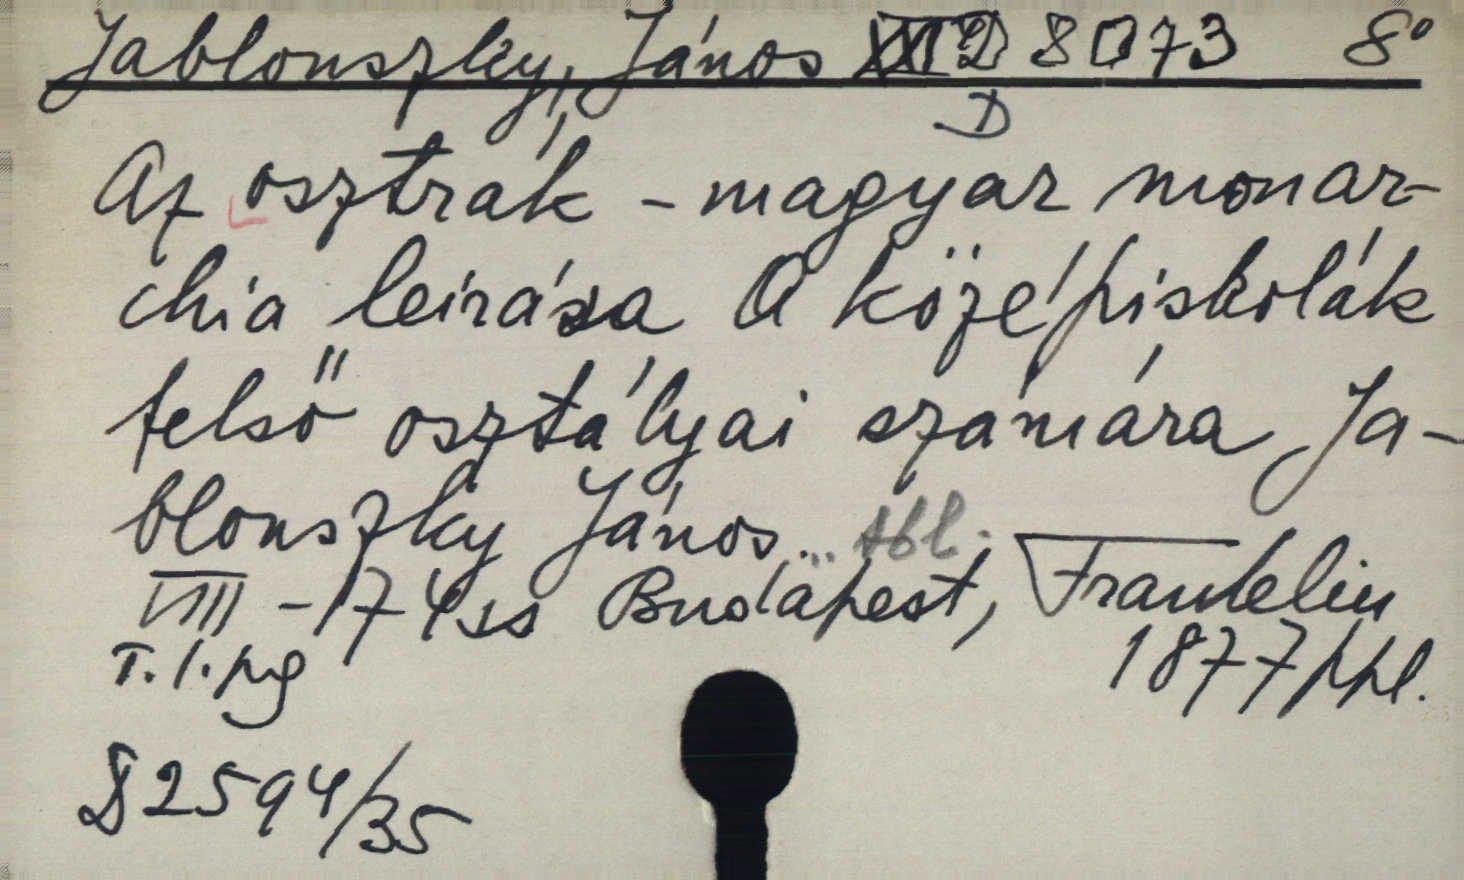 Jablonszky, János D 8073 8°
D
Az osztrák - magyar monar-
chia leirása A középiskolák
felső osztályai számára Ja-
blonszky János... Abl.
VIII - 174 ss Budapest, Franklin
T. 1. ny 1877 ppl.
82594/35